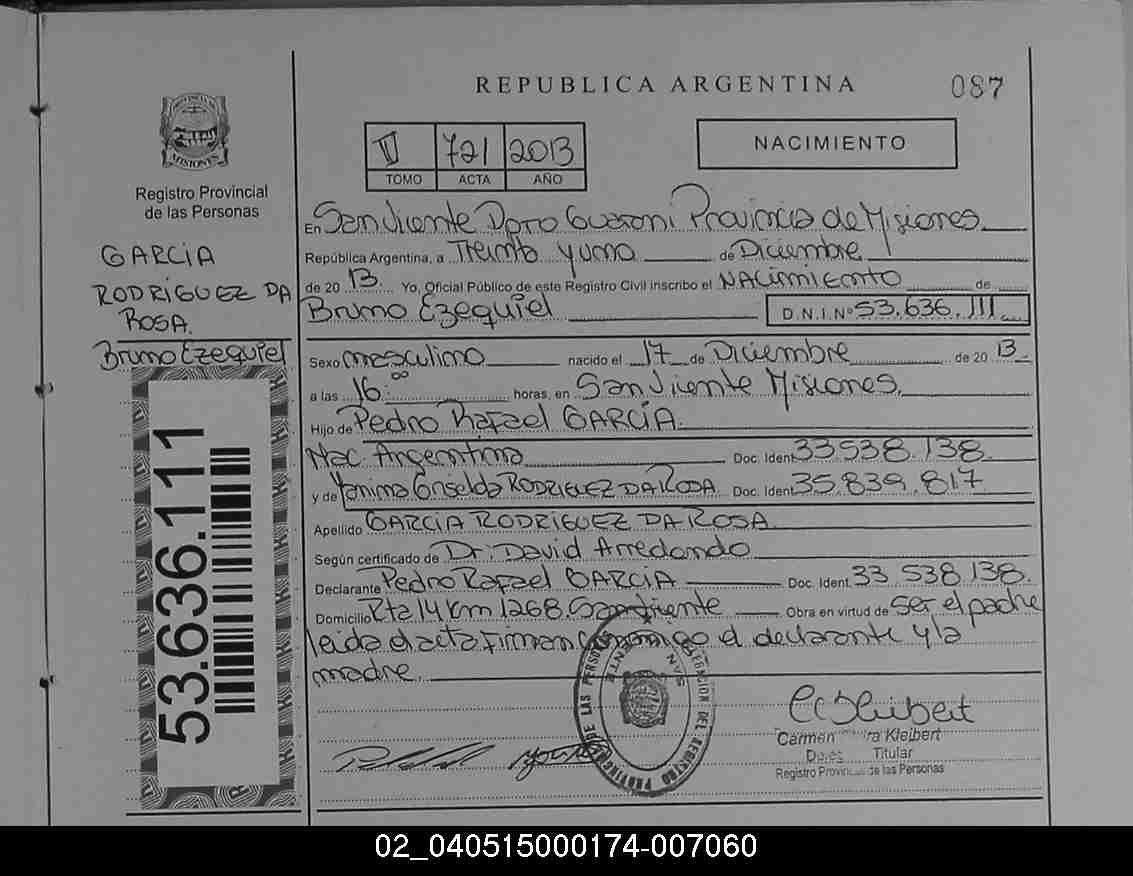 REPUBLICA ARGENTINA
087
PROVINCIA DE
MISIONES
Registro Provincial
de las Personas
GARCIA
RODRIGUEZ DA
ROSA.
Bruno Ezequiel
53.636.111
II 721 2013
TOMO ACTA AÑO
NACIMIENTO
En San Vicente Dpto Guarani Provincia de Misiones
República Argentina, a Treinta y uno de Diciembre
de 2013. Yo, Oficial Público de este Registro Civil inscribo el NACimiento de
Bruno Ezequiel D.N.I.Nº 53.636.111
Sexo masculino nacido el 17 de Diciembre de 2013.
a las 16:00 horas, en San Vicente Misiones,
Hijo de Pedro Rafael GARCÍA
Nac. Argentina Doc. Ident. 33538.138
y de Yanina Griselda RODRIGUEZ DA RODA Doc. Ident. 35.839.817
Apellido GARCIA RODRIGUEZ DA ROSA
Según certificado de Dr. David Arredondo
Declarante Pedro Rafael GARCIA Doc. Ident. 33 538 138.
Domicilio Rta 14 Km 1268. San Vicente Obra en virtud de ser el padre
leida el acta Firman conmigo el declarante y la
madre.
SAN VICENTE
Carmen Kleibert
Titular
Registro Provincial de las Personas
02_040515000174-007060